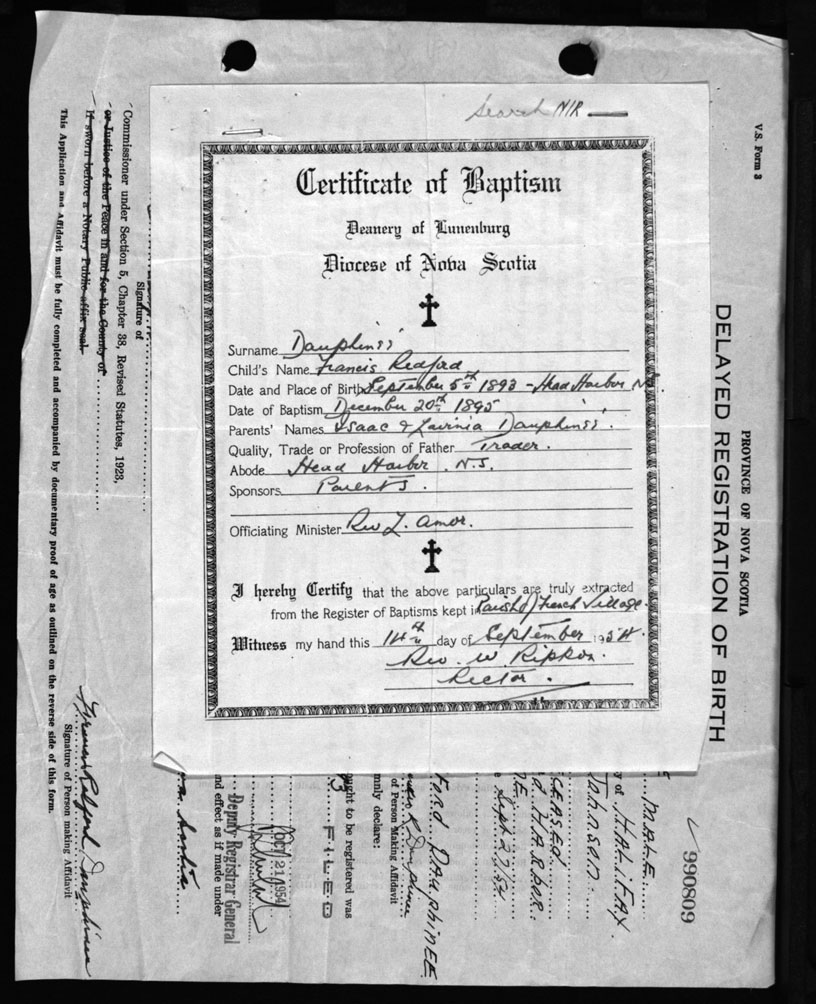 Search NIR
Certificate of Baptism
Deanery of Lunenburg
Diocese of Nova Scotia
Surname Dauphineé
Child's Name Francis Redford
Date and Place of Birth September 5th 1893 - Head Harbor N.S.
Date of Baptism December 20th 1895
Parents' Names Isaac & Lavinia Dauphineé.
Quality, Trade or Profession of Father Trader.
Abode Head Harbor. N.S.
Sponsors Parents.
Officiating Minister Rev L. Amor.
I hereby Certify that the above particulars are truly extracted
from the Register of Baptisms kept in Parish of French Village.
Witness my hand this 14th day of September 1954.
Rev. W. Rippon.
Rector.
V.S. Form 3
PROVINCE OF NOVA SCOTIA
DELAYED REGISTRATION OF BIRTH
990809
MALE
y of HALIFAX
JOHNSON
CEASED
d HARBOR
Sept 27/54
FORD DAUPHINEE
of Person Making Affidavit
mnly declare:
ought to be registered was
FILED
OCT 21 1954
Deputy Registrar General
nd effect as if made under
Signature of
Commissioner under Section 5, Chapter 38, Revised Statutes, 1923,
or Justice of the Peace in and for the County of
If sworn before a Notary Public affix seal.
This Application and Affidavit must be fully completed and accompanied by documentary proof of age as outlined on the reverse side of this form.
Francis Redford Dauphinee
Signature of Person making Affidavit